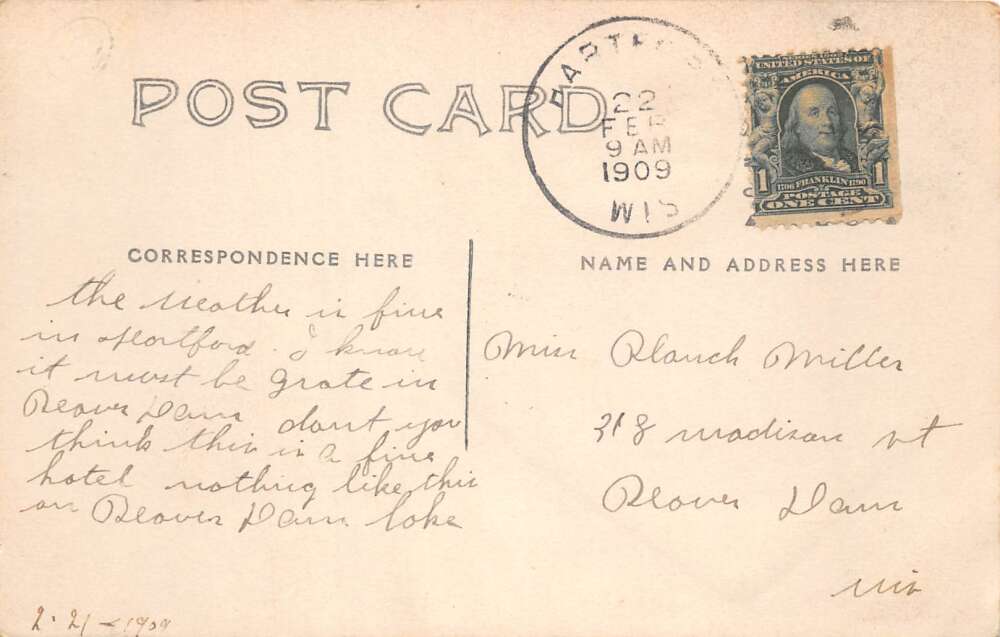 POST CARD
22
FEB
9 AM
1909
WIS
UNITED STATES OF
AMERICA
1 1706 FRANKLIN 1790 1
POSTAGE
ONE CENT
CORRESPONDENCE HERE
NAME AND ADDRESS HERE
the weather is fine
in Hartford. I know
it must be grate in
Beaver Dam dont you
think this is a fine
hotel nothing like this
on Beaver Dam lake
2-21-1909
Miss Blanch Miller
318 madison st
Beaver Dam
Wis